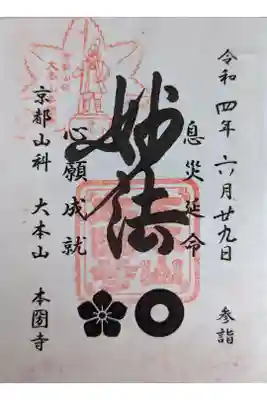 令和四年六月廿九日 参詣
息災延命
妙法
心願成就
京都山科 大本山 本圀寺